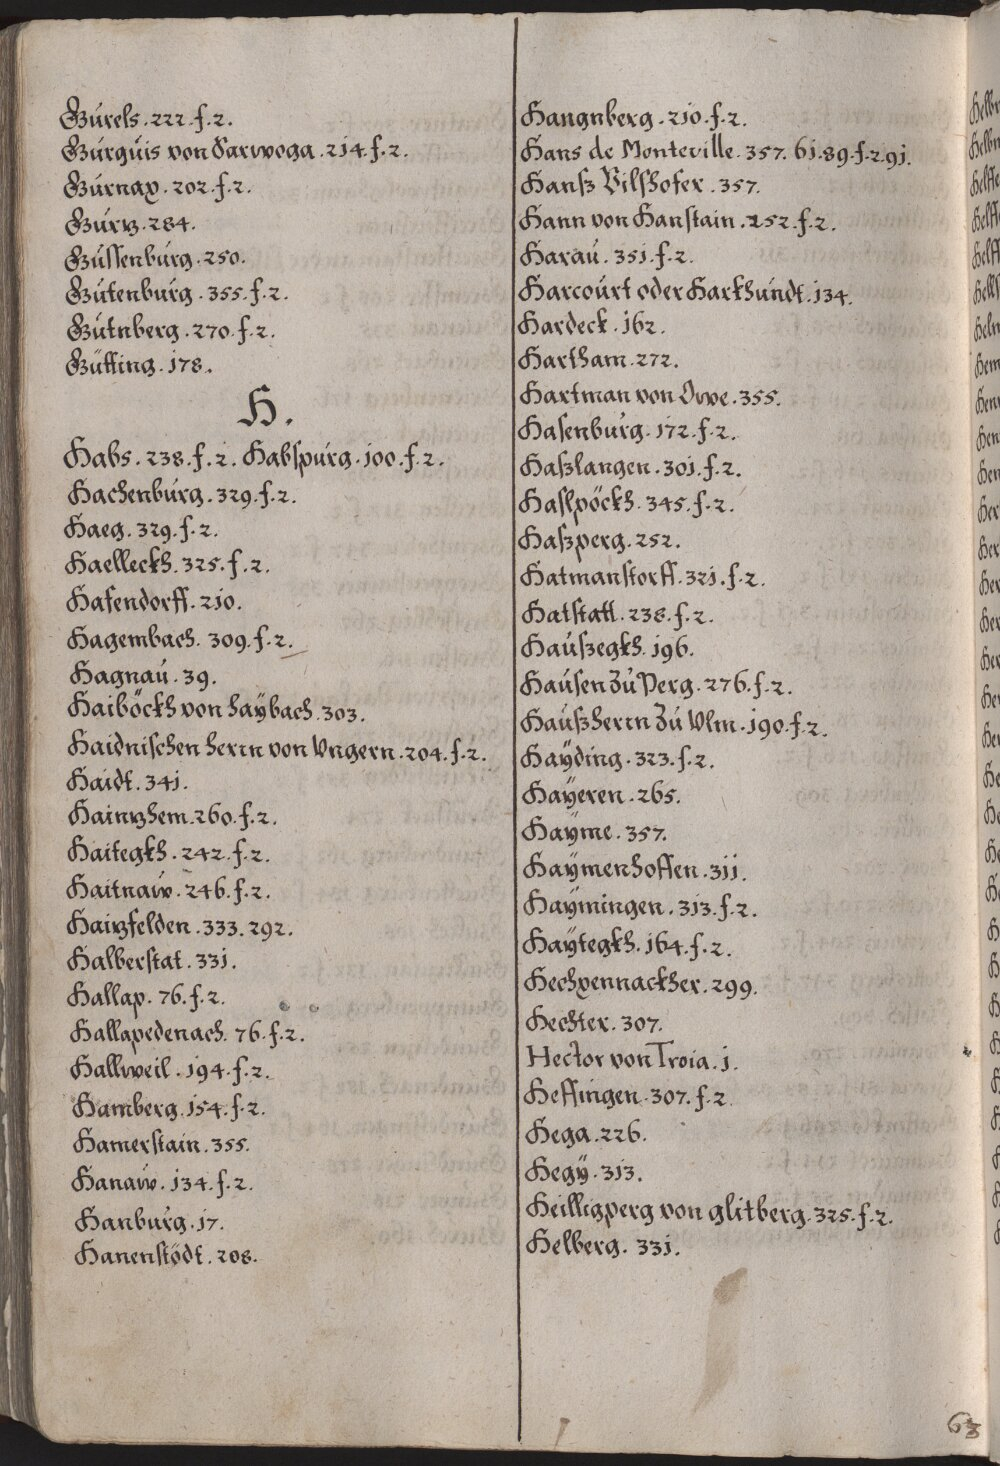 Gúrels . 222 . f . 2 .
Gúrgúis von Sarwoga . 214 . f . 2 .
Gúrnax . 202 . f . 2 .
Gúrtz . 284 .
Gússenbúrg . 250 .
Gútenbúrg . 355 . f . 2 .
Gútnberg . 270 . f . 2 .
Güffing . 178 .
H .
Habs . 238 . f . 2 . Habspúrg . 100 . f . 2 .
Hachenbúrg . 329 . f . 2 .
Haeg . 329 . f . 2 .
Haelleckh . 325 . f . 2 .
Hafendorff . 210 .
Hagembach . 309 . f . 2 .
Hagnaú . 39 .
Haiböckh von haÿbach . 303 .
Haidnischen herrn von Vngern . 204 . f . 2 .
Haidt . 341 .
Haintzhem . 260 . f . 2 .
Haitegkh . 242 . f . 2 .
Haitnaẃ . 246 . f . 2 .
Haitzfelden . 333 . 292 .
Halberstat . 331 .
Hallap . 76 . f . 2 .
Hallapedenach . 76 . f . 2 .
Hallweil . 194 . f . 2 .
Hamberg . 154 . f . 2 .
Hamerstain . 355 .
Hanaẃ . 134 . f . 2 .
Hanbúrg . 17 .
Hanenstödt . 208 .
Hangnberg . 210 . f . 2 .
Hans de Monteville . 357 . 61 . 89 . f . 2 . 91 .
Hansz Vilshofer . 357 .
Hann von Hanstain . 252 . f . 2 .
Haraú . 351 . f . 2 .
Harcoúrt oder Harkhúndt . 134 .
Hardeck . 162 .
Hartham . 272 .
Hartman von Owe . 355 .
Hasenbúrg . 172 . f . 2 .
Haszlangen . 301 . f . 2 .
Haslpöckh . 345 . f . 2 .
Haszperg . 252 .
Hatmanstorff . 321 . f . 2 .
Hatstatt . 238 . f . 2 .
Haúszegkh . 196 .
Haúsen Zú Perg . 276 . f . 2 .
Haúszherrn Zú Vlm . 190 . f . 2 .
Haÿding . 323 . f . 2 .
Haÿeren . 265 .
Haÿme . 357 .
Haÿmenhoffen . 311 .
Haÿmingen . 313 . f . 2 .
Haÿtegkh . 164 . f . 2 .
Hechpennackher . 299 .
Hechter . 307 .
Hector von Troia . 1 .
Heffingen . 307 . f . 2
Hega . 226 .
Hegÿ . 313 .
Heilligperg von glitberg . 325 . f . 2 .
Helberg . 331 .
63